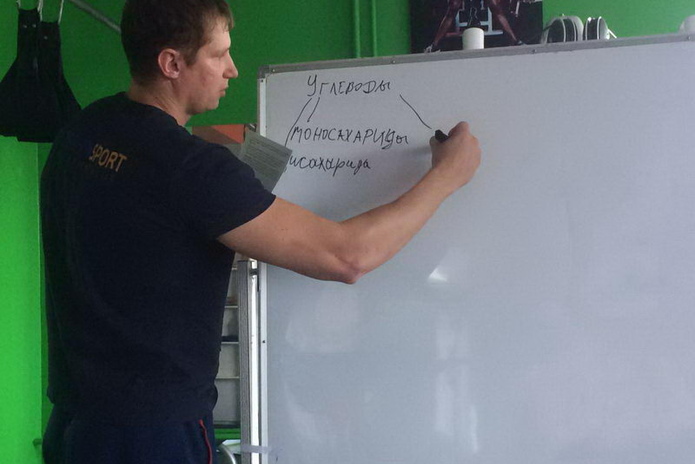 SPORT
Углеводы
моносахариды
исахарида